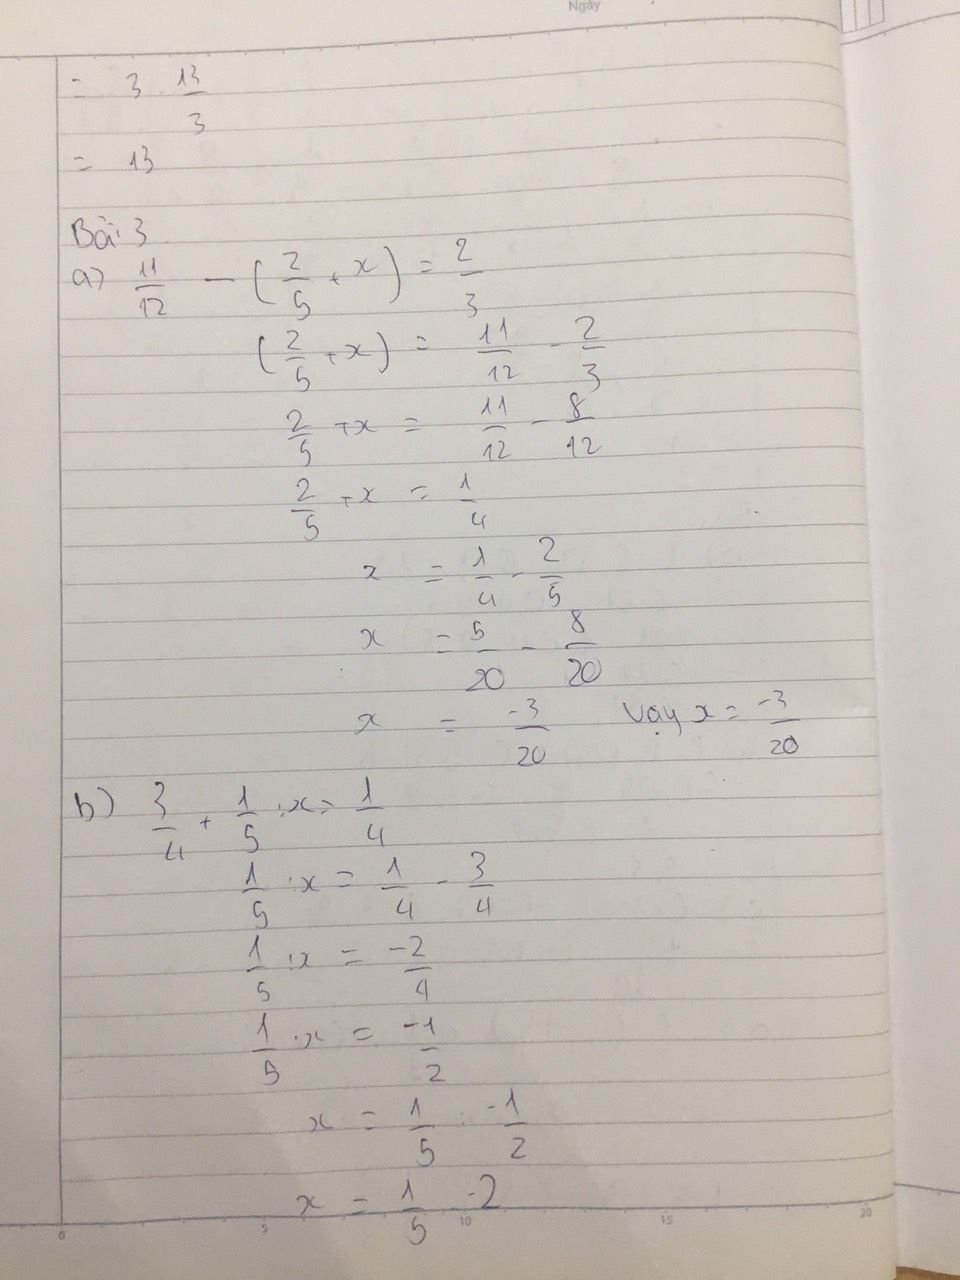 Ngày
= 3 . 13/3
= 13
Bài 3
a) 11/12 - (2/5 + x) = 2/3
(2/5 + x) = 11/12 - 2/3
2/5 + x = 11/12 - 8/12
2/5 + x = 1/4
x = 1/4 - 2/5
x = 5/20 - 8/20
x = -3/20 Vậy x = -3/20
b) 3/4 + 1/5 : x = 1/4
1/5 : x = 1/4 - 3/4
1/5 : x = -2/4
1/5 : x = -1/2
x = 1/5 : -1/2
x = 1/5 . -2
0 5 10 15 20